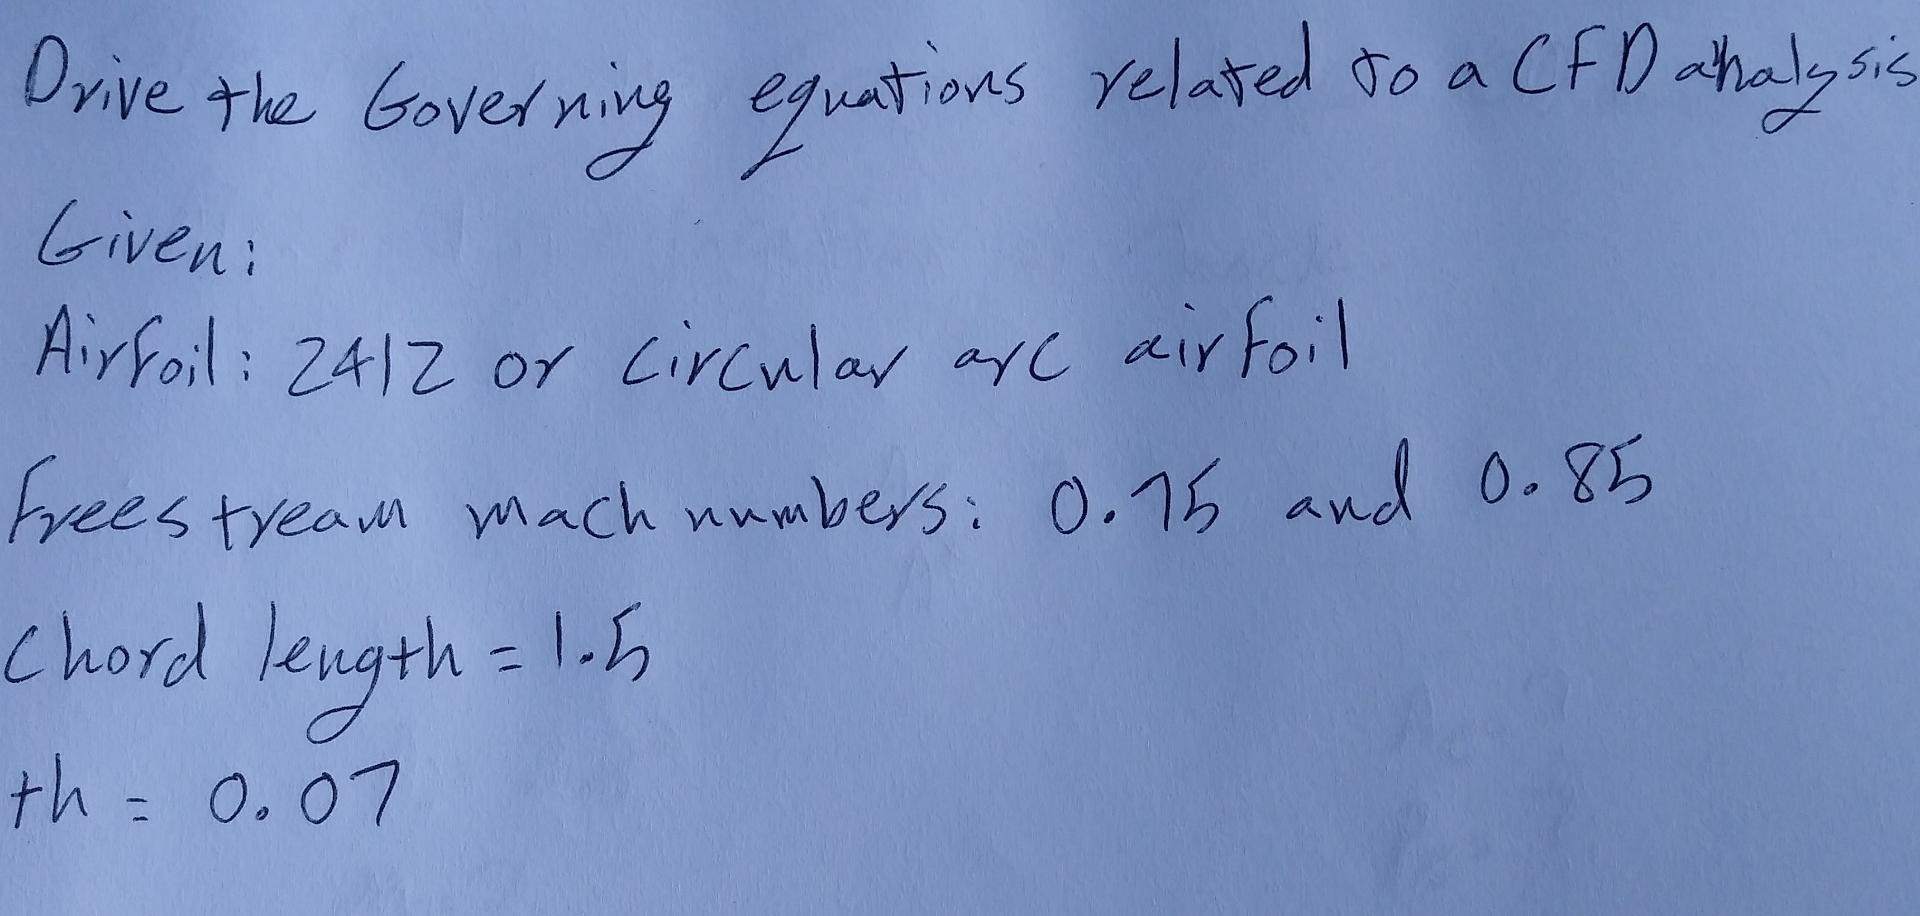 Drive the Governing equations related to a CFD analysis
Given:
Airfoil: 2412 or circular arc airfoil
freestream mach numbers: 0.75 and 0.85
chord length = 1.5
th = 0.07